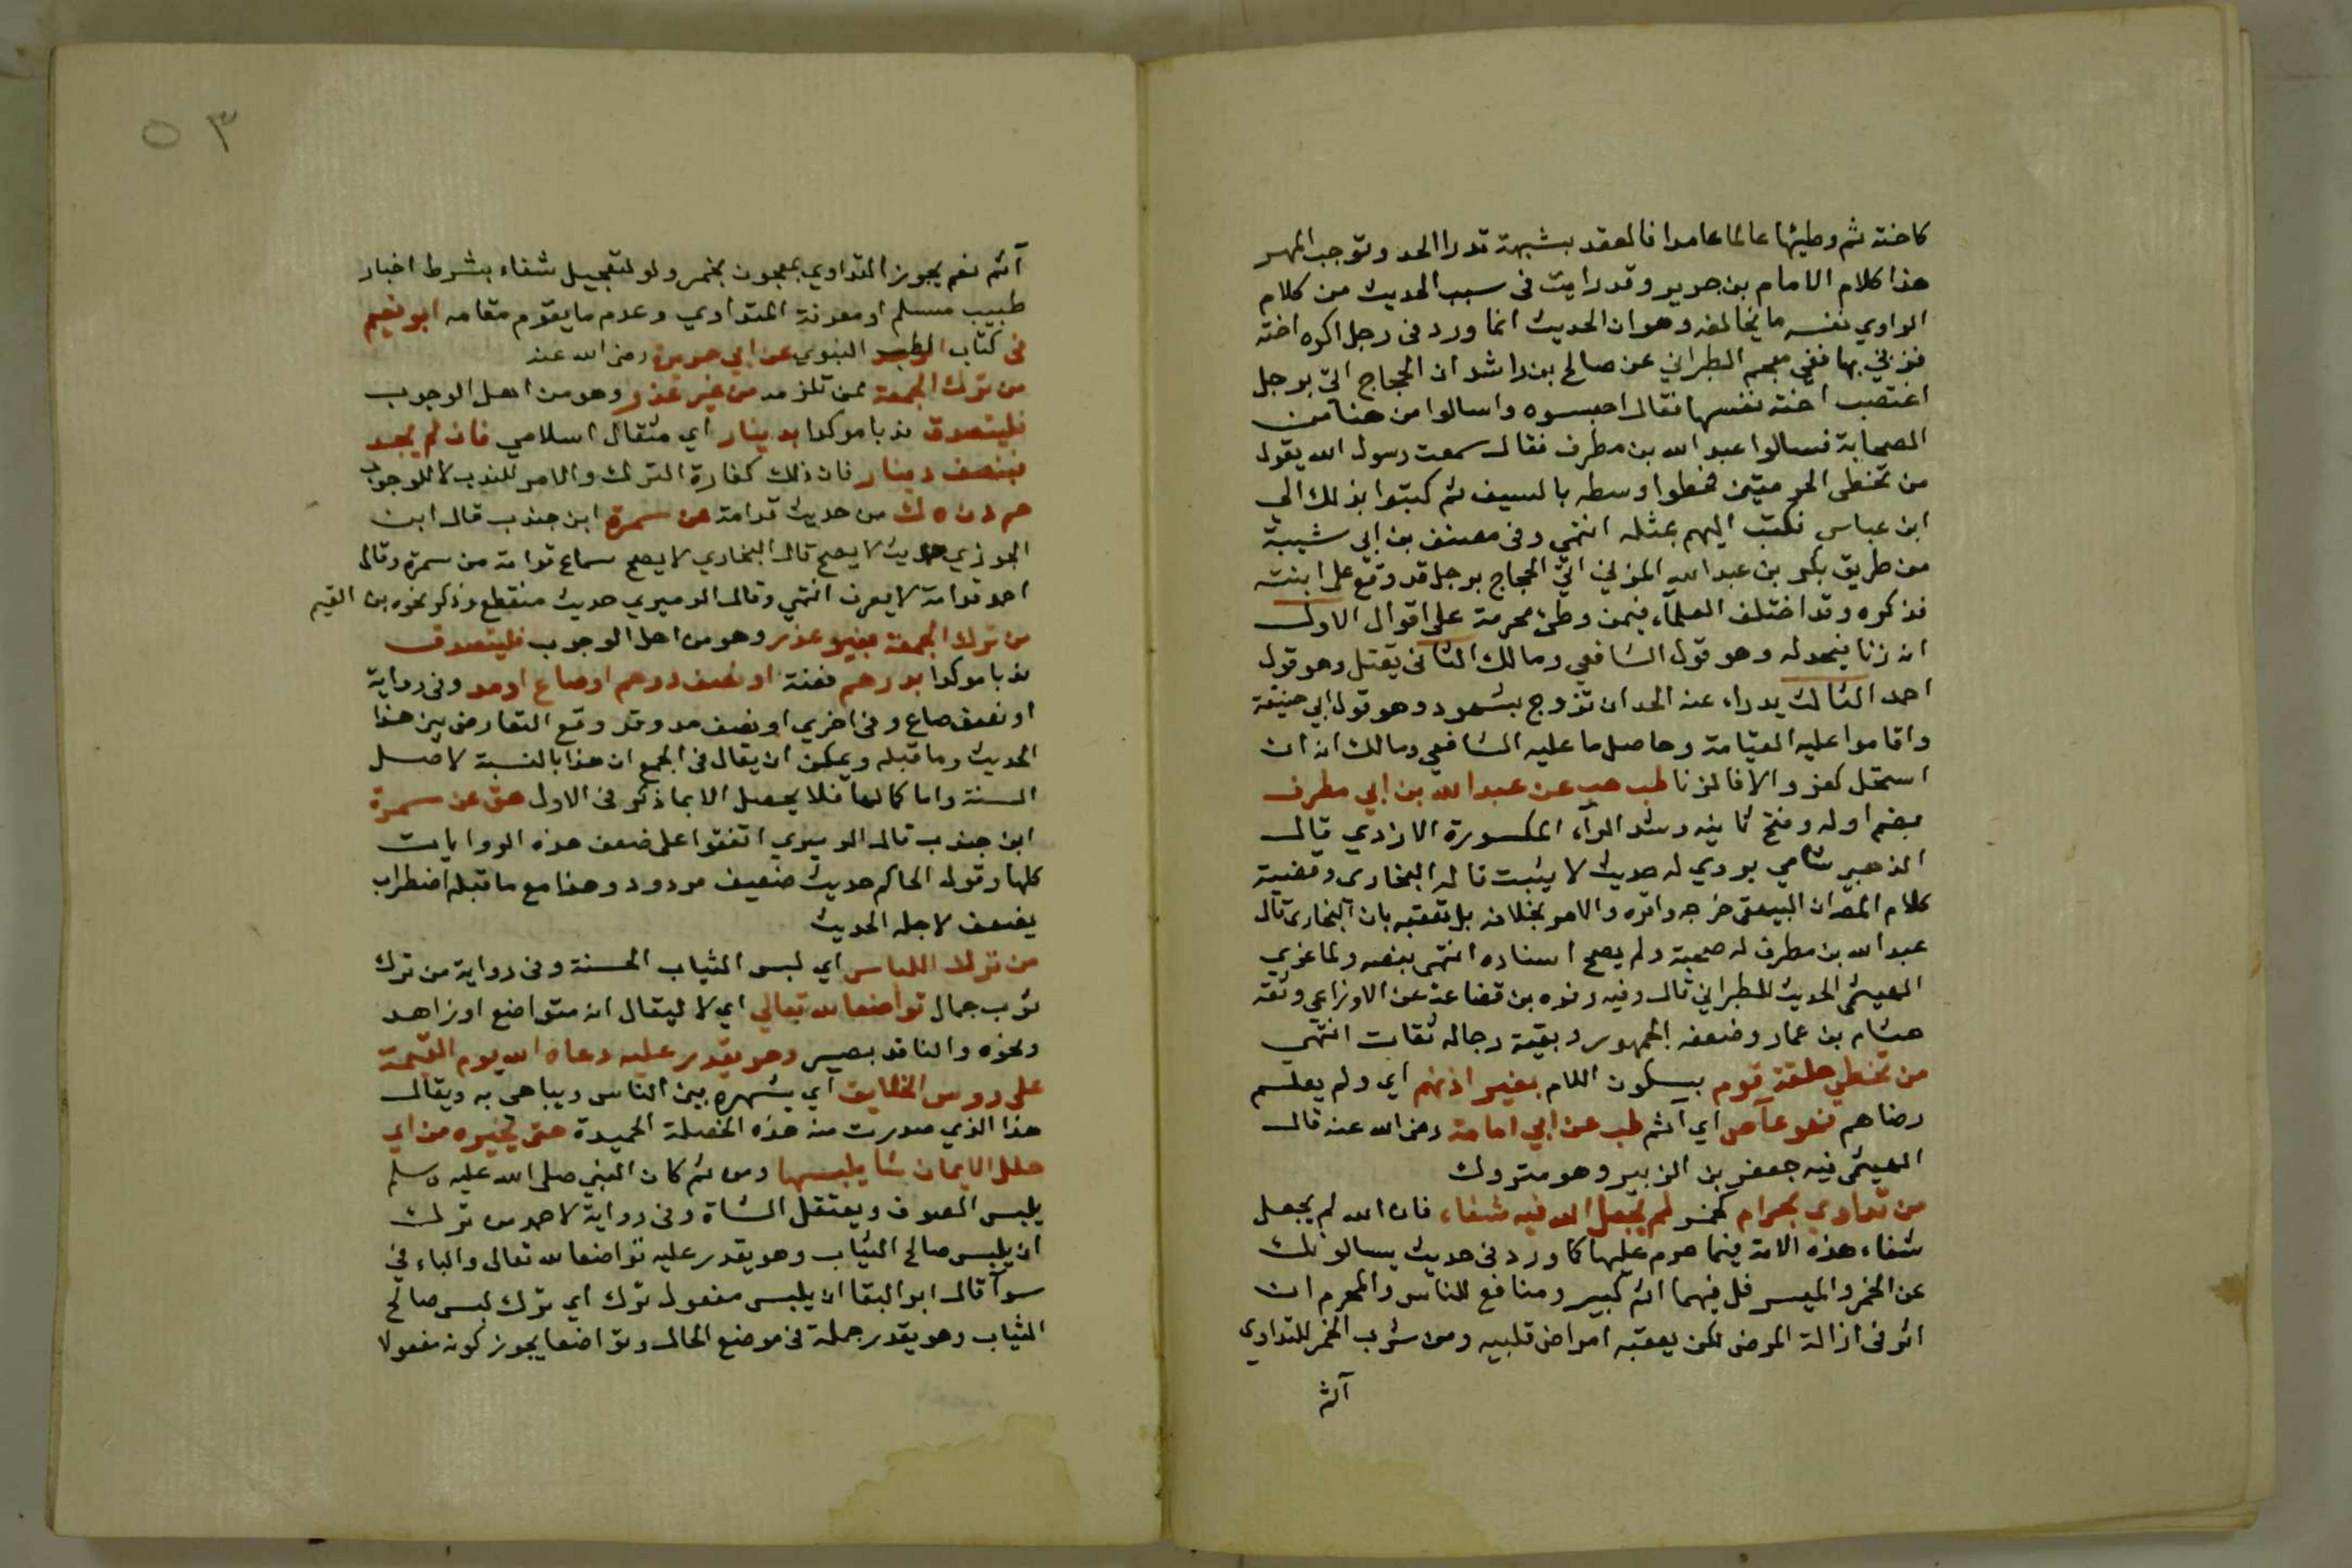 كاخته ثم وطيها عالما عامدا فالعقد بشبهة تدرا الحد وتوجب المهر
هذا كلام الامام بن جرير وقد رايت فى سبب الحديث من كلام
الراوي نفسه ما يخالفه وهو ان الحديث انما ورد فى رجل اكره اخته
فزني بها ففي معجم الطبراني عن صالح بن راشد ان الحجاج اتي برجل
اغتصب اخته نفسها فقال احبسوه واسالوا من هنا من
الصحابة فسالوا عبد الله بن مطرف فقال سمعت رسول الله يقول
من تخطى الحرمتين فخطوا وسطه بالسيف ثم كتبوا بذلك الى
ابن عباس فكتب اليهم بمثله انتهي وفى مصنف بن ابي شيبة
من طريق بكر بن عبد الله المزني اتي الحجاج برجل قد وقع على ابنته
فذكره وقد اختلف العلماء فيمن وطئ محرمة على اقوال الاول
انه زنا فيحد له وهو قول الشافعي ومالك الثانى يقتل وهو قول
احد الثالث يدراء عنه الحد ان تزوج بشهود وهو قول ابي حنيفة
واقاموا عليه القيامة وحاصل ما عليه الشافعي ومالك انه ان
استحل كفر والا فالزنا طب هب عن عبد الله بن ابي مطرف
بضم اوله وفتح ثانيه وشد الراء المكسورة الازدي قال
الذهبي شامي يروي له حديث لا يثبت قاله البخارى وقضية
كلام المص ان البيهقى خرجه واقره والامر بخلافه بل تعقبه بان البخارى قال
عبد الله بن مطرف له صحبة ولم يصح اسناده انتهى بنصه ولما عزي
الهيثمى الحديث للطبراني قال وفيه رفده بن قضاعة عن الاوزاعي وثقه
هشام بن عمار وضعفه الجمهور وبقية رجاله ثقات انتهي
من تخطي حلقة قوم بسكون اللام بغير اذنهم اي ولم يعلم
رضاهم فهو عاص اي اثم طب عن ابي امامة رضى الله عنه قال
الهيثمى فيه جعفر بن الزبير وهو متروك
من تداوي بحرام كخمر لم يجعل الله فيه شفاء فان الله لم يجعل
شفاء هذه الامة فيما حرم عليها كما ورد فى حديث يسالونك
عن الخمر والميسر قل فيهما اثم كبير ومنافع للناس والمحرم ان
اثر فى ازالة المرض لكن يعقبه امراض قلبيه ومن شرب الخمر للتداوي
آثم
٥٣
آثم نعم يجوز التداوي بمعجون بخمر ولو لتعجيل شفاء بشرط اخبار
طبيب مسلم او معرفة المتداوي وعدم ما يقوم مقامه ابو نعيم
فى كتاب الطب النبوي عن ابي هريرة رضى الله عنه
من ترك الجمعة ممن تلزمه من غير عذر وهو من اهل الوجوب
فليتصدق ندبا موكدا بدينار اي مثقال اسلامي فان لم يجد
فبنصف دينار فان ذلك كفارة الترك والامر للندب لا للوجوب
حم د ن ه ك من حديث قدامة عن سمرة ابن جندب قال ابن
الجوزي حديث لا يصح قال البخاري لا يصح سماع قدامة من سمرة وقال
احد قدامة لا يعرف انتهي وقال الدميري حديث منقطع وذكر نحوه بن القيم
من ترك الجمعة بغير عذر وهو من اهل الوجوب فليتصدق
ندبا موكدا بدرهم فضة او نصف درهم او صاع او مد وفى رواية
او نصف صاع وفى اخري او نصف مد وقد وقع التعارض بين هذا
الحديث وما قبله ويمكن ان يقال فى الجمع ان هذا بالنسبة لاصل
السنة واما كمالها فلا يحصل الا بما ذكر فى الاول هق عن سمرة
ابن جندب قال الدميري اتفقوا على ضعف هذه الروايات
كلها وقول الحاكم حديث ضعيف مردود وهذا مع ما قبله اضطراب
يضعف لاجله الحديث
من ترك اللباس اي لبس الثياب الحسنة وفى رواية من ترك
ثوب جمال تواضعا لله تعالي اي لا ليقال انه متواضع او زاهد
ونحوه والناقد بصير وهو يقدر عليه دعاه الله يوم القيمة
على روس الخلايق اي يشهره بين الناس ويباهى به ويقال
هذا الذي صدرت منه هذه الخصلة الحميدة حتى يخيره من اي
حلل الايمان شا يلبسها ومن ثم كان النبي صلى الله عليه وسلم
يلبس الصوف ويعتقل الشاة وفى رواية لاحد من ترك
ان يلبس صالح الثياب وهو يقدر عليه تواضعا لله تعالى والباء في
سوآ قال ابو البقا ان يلبس مفعول ترك اي ترك لبس صالح
الثياب وهو يقدر جملة فى موضع الحال وتواضعا يجوز كونه مفعولا